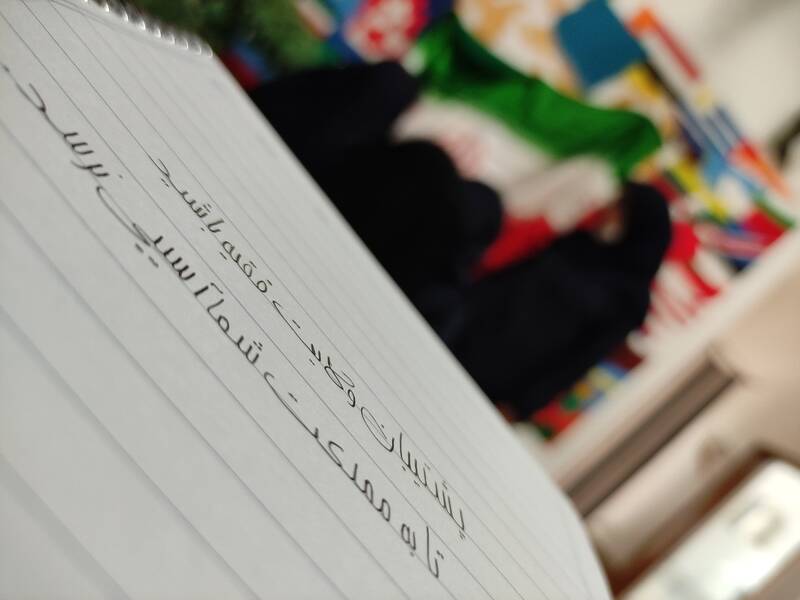 پشتیبان ولایت فقیه باشید
تا به مملکت شما آسیبی نرسد.